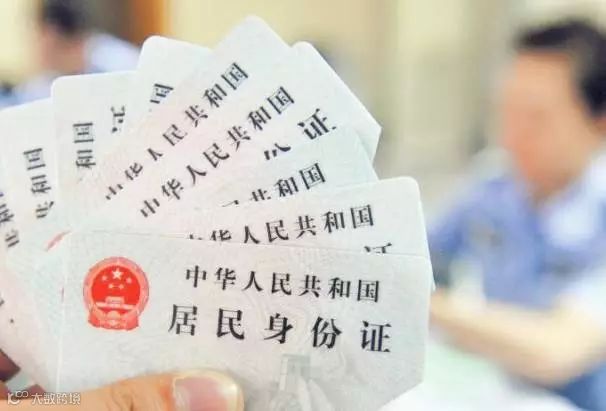 和国
中华人民共和国
中华人民共和国
份证
民共和国
民共和国
中华人民共和国
居民身份证
大数跨境